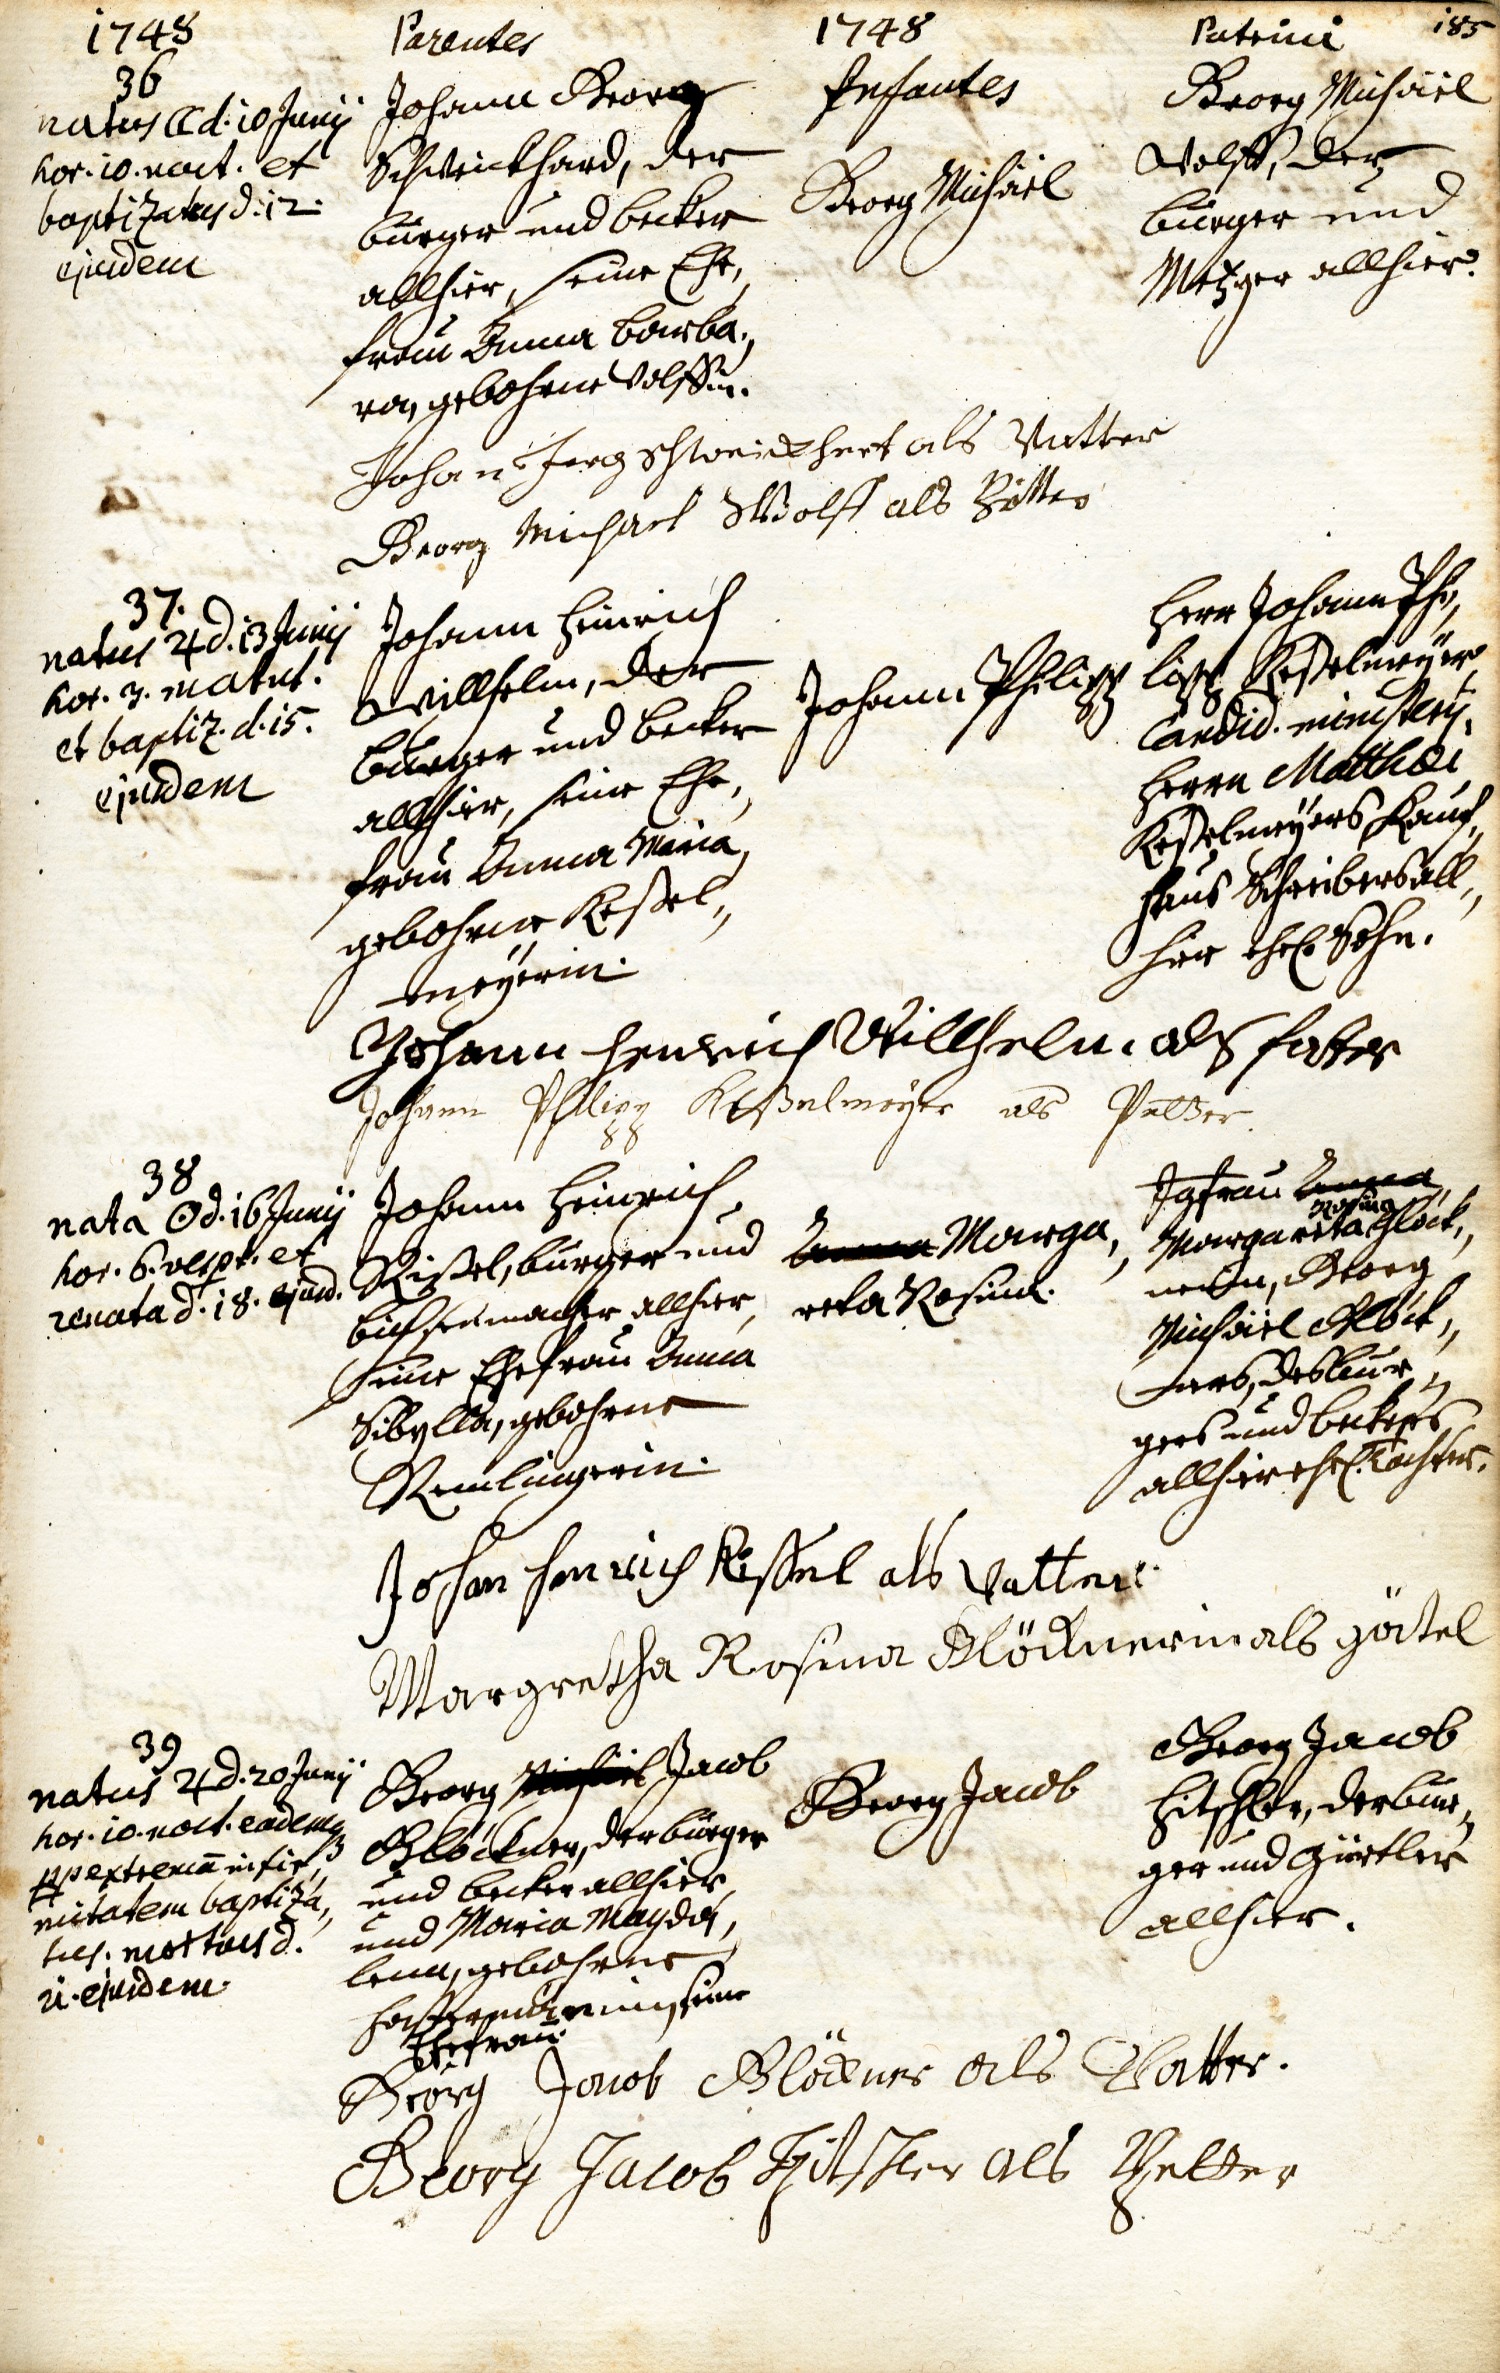 1748
Parentes
1748
Patrini
185
36
natus ☾ d. 10 Junij
hor. 10. noct. et
baptizatus d. 12.
ejusdem
Johann Georg
Schweickhard, der
burger und becker
allhier, seine Ehe,
frau Anna Barba,,
ra, gebohrne Wolffin.
Infantes
Georg Michäel
Georg Michäel
Wolff, der
burger und
Metzger allhier.
Johan Jerg Schweickhert als Vatter
Georg Michael Wolff als Pötter
37.
natus ♃ d. 13 Junij
hor. 3. matut.
et baptiz. d. 15.
ejusdem
Johann Heinrich
Willhelm, der
burger und becker
allhier, seine Ehe,,
frau Anna Maria,
gebohrne Keßel,,
meÿerin.
Johann Philipp
Herr Johann Phi,,
lipp Keßelmeÿer
Candid. ministerij,
Herrn Matthæi
Keßelmeÿers, Kauf,,
haus Schreibers all,,
hier ehel. Sohn.
Johann Henrich Willhelm als fatter
Johann Philipp Keßelmeÿer als Petter
38
nata ☉ d. 16 Junij
hor. 6. vesper. et
renata d. 18. ejusd.
Johann Heinrich
Kißel, burger und
büchsenmacher allhier,
seine Ehefrau Anna
Sibylla, gebohrne
Remlingerin.
Anna Marga,,
reta Rosina.
Jgfrau Anna
Rosina
Margareta Glöck,,
nerin, Georg
Michäel Glöck,,
ners, des bur,,
gers und beckers
allhier ehel. Tochter.
Johan Henrich Kissel als Vatter
Margretha Rosina Glöcknerin als göttel
39
natus ♃ d. 20 Junij
hor. 10. noct. eademq3
pp extremā infir,,
mitatem baptiza,,
tus. mortuus d.
21. ejusdem.
Georg Michäel Jacob
Glöckner, der burger
und becker allhier
und Maria Magda,,
lena, gebohrne
seine
Ehefrau.
Georg Jacob
Georg Jacob
Hitschler, der bur,,
ger und Gürtler
allhier.
Georg Jacob Glöckner als Vatter.
Georg Jacob Hitschler als Petter